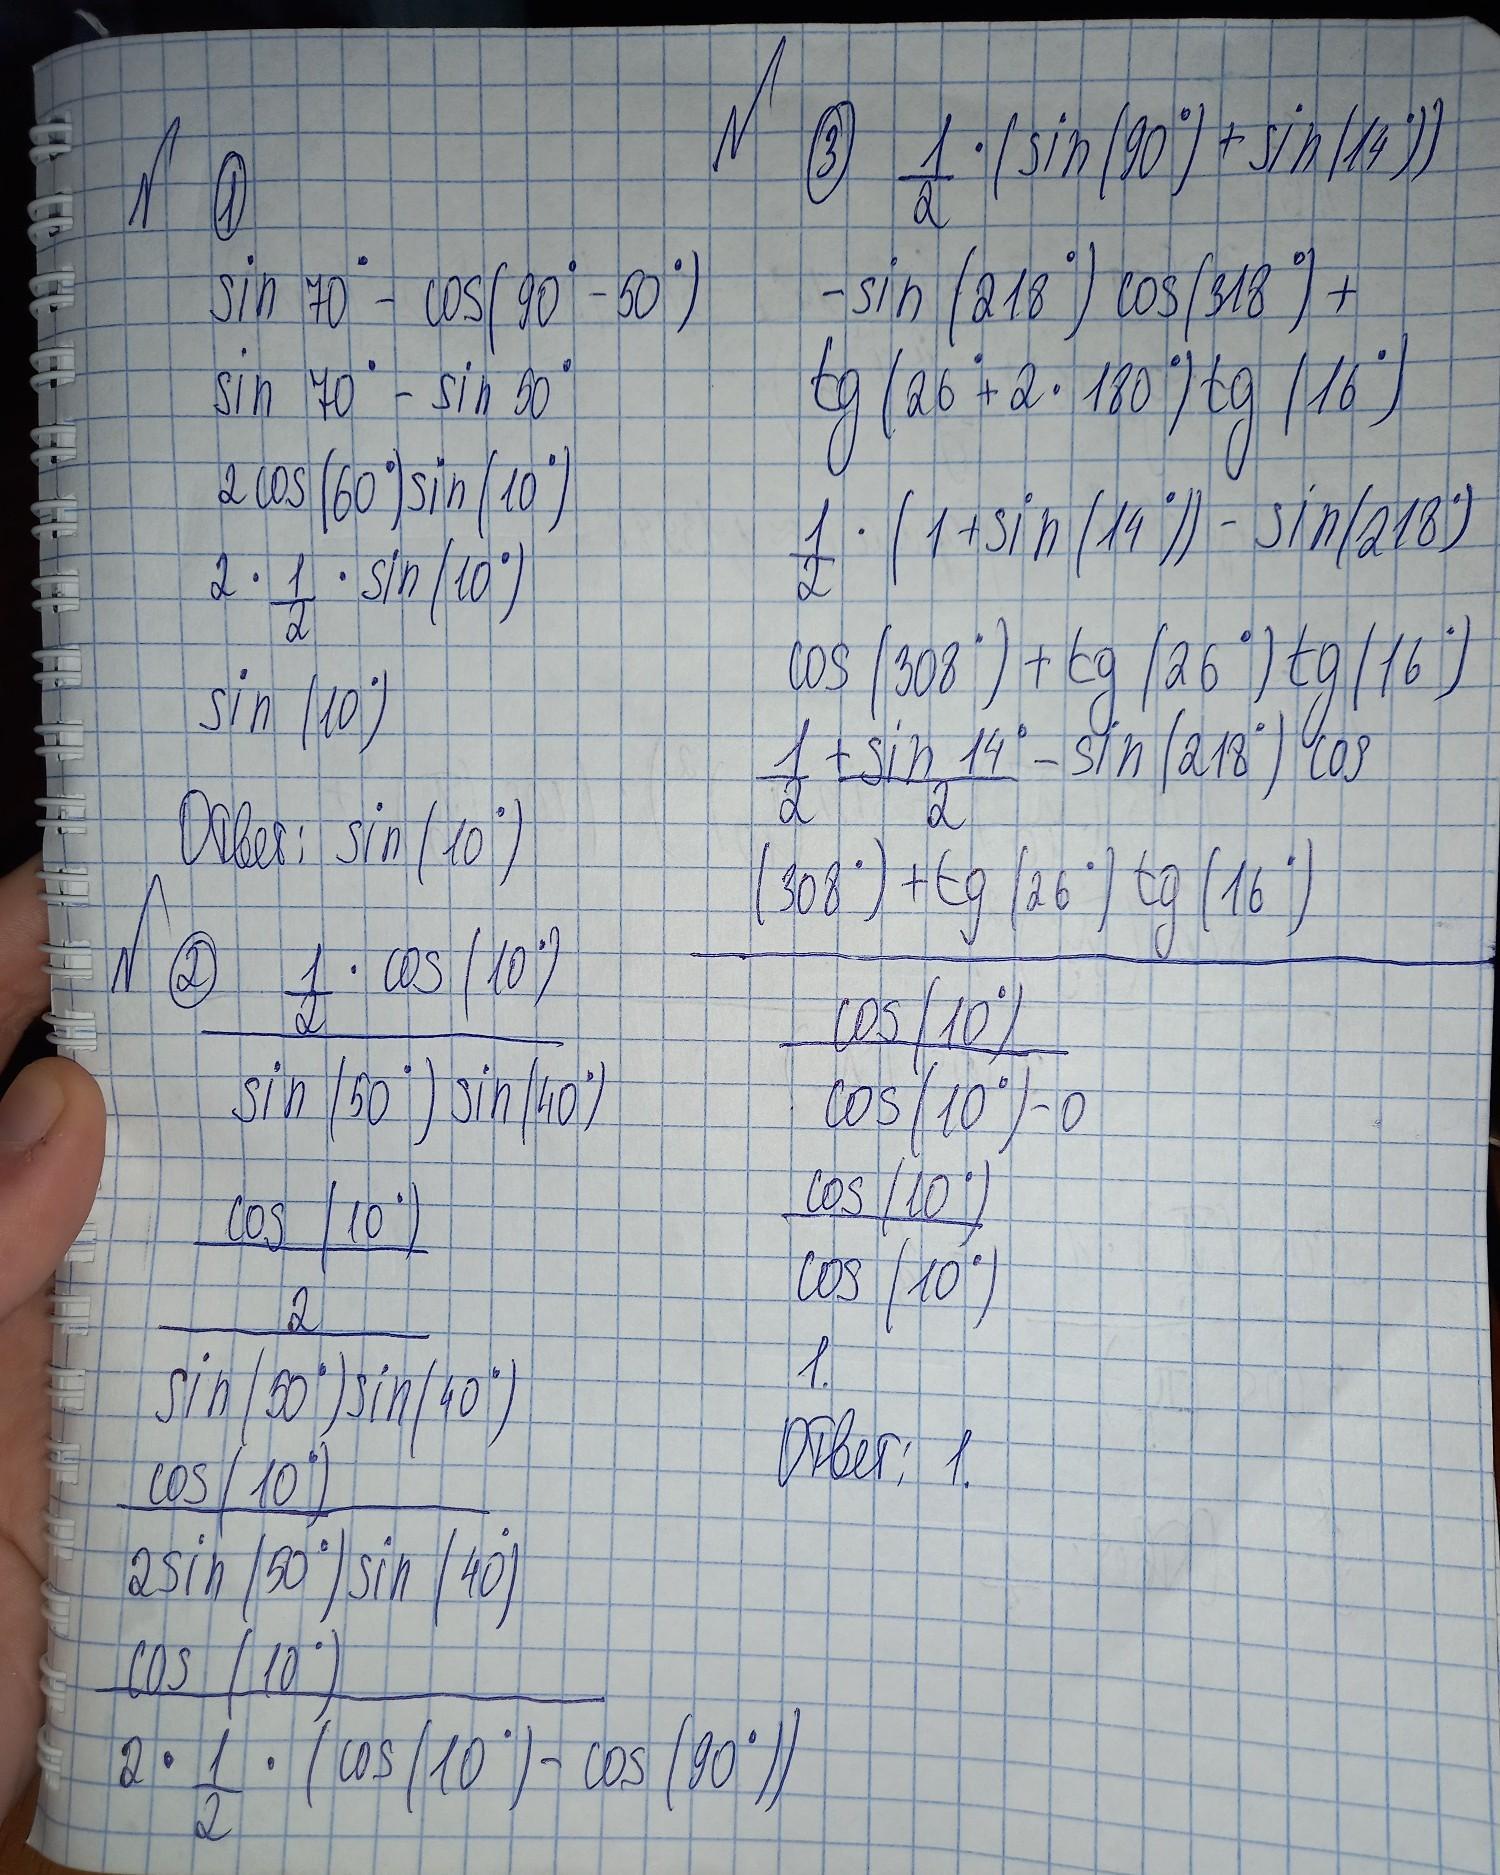 N ①
sin 70° - cos(90° - 50°)
sin 70° - sin 50°
2cos(60°)sin(10°)
2 · 1/2 · sin(10°)
sin(10°)
Ответ: sin(10°)
N ② 1/2 · cos(10°)
sin(50°)sin(40°)
cos(10°)
2
sin(50°)sin(40°)
cos(10°)
2sin(50°)sin(40°)
cos(10°)
2 · 1/2 · (cos(10°) - cos(90°))
N ③ 1/2 · (sin(90°) + sin(14°))
- sin(218°) cos(318°) +
tg(26° + 2 · 180°) tg(16°)
1/2 · (1 + sin(14°)) - sin(218°)
cos(308°) + tg(26°) tg(16°)
1/2 + sin 14°/2 - sin(218°) cos
(308°) + tg(26°) tg(16°)
cos(10°)
cos(10°) - 0
cos(10°)
cos(10°)
1.
Ответ: 1.